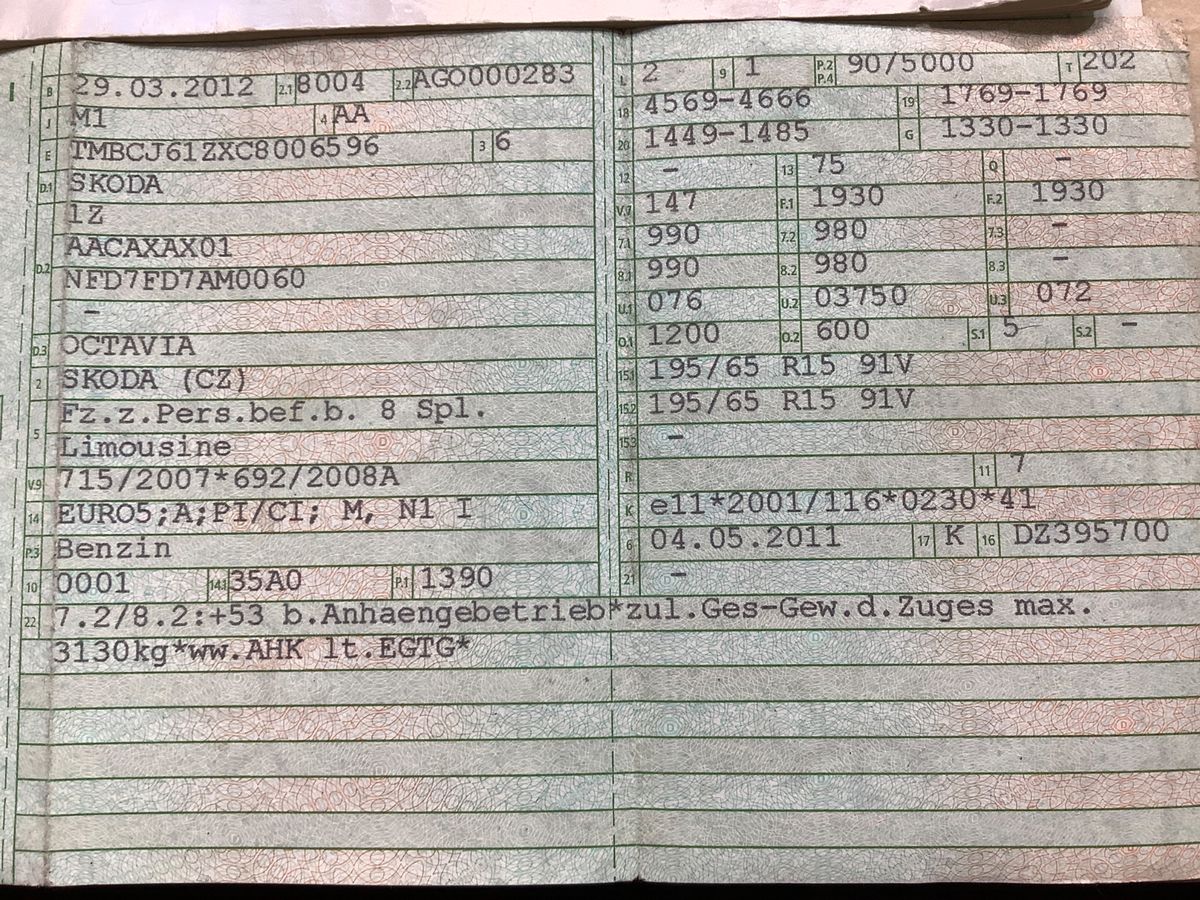 B 29.03.2012 2.1 8004 2.2 AGO000283
J M1 4 AA
E TMBCJ61ZXC8006596 3 6
D.1 SKODA
1Z
AACAXAX01
D.2 NFD7FD7AM0060
–
D.3 OCTAVIA
2 SKODA (CZ)
Fz.z.Pers.bef.b. 8 Spl.
5 Limousine
V.9 715/2007*692/2008A
14 EURO5;A;PI/CI; M, N1 I
P.3 Benzin
10 0001 14.1 35A0 P.1 1390
L 2 9 1 P.2 P.4 90/5000 T 202
18 4569-4666 19 1769-1769
20 1449-1485 G 1330-1330
12 – 13 75 Q –
V.7 147 F.1 1930 F.2 1930
7.1 990 7.2 980 7.3 –
8.1 990 8.2 980 8.3 –
U.1 076 U.2 03750 U.3 072
O.1 1200 O.2 600 S.1 5 S.2 –
15.1 195/65 R15 91V
15.2 195/65 R15 91V
15.3 –
R 11 7
K e11*2001/116*0230*41
6 04.05.2011 17 K 16 DZ395700
21 –
22 7.2/8.2:+53 b.Anhaengebetrieb*zul.Ges-Gew.d.Zuges max.
3130kg*ww.AHK lt.EGTG*